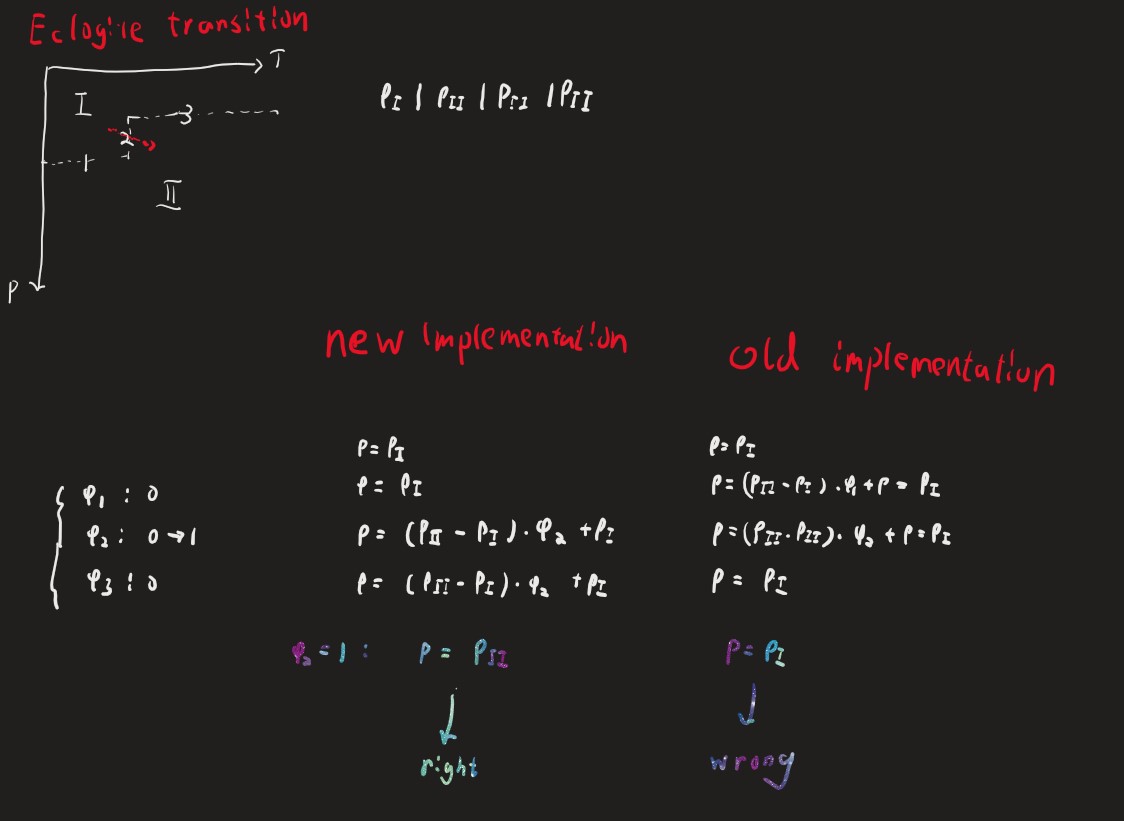 Eclogite transition
T
I
3
2
1
II
P
ρ_I | ρ_II | ρ_II | ρ_II
new implementation
old implementation
ρ = ρ_I
ρ = ρ_I
φ_1 : 0
ρ = ρ_I
ρ = (ρ_II - ρ_I) · φ_1 + ρ = ρ_I
φ_2 : 0 → 1
ρ = (ρ_II - ρ_I) · φ_2 + ρ_I
ρ = (ρ_II - ρ_II) · φ_2 + ρ = ρ_I
φ_3 : 0
ρ = (ρ_II - ρ_I) · φ_2 + ρ_I
ρ = ρ_I
φ_2 = 1 :
ρ = ρ_II
ρ = ρ_I
↓
↓
right
wrong